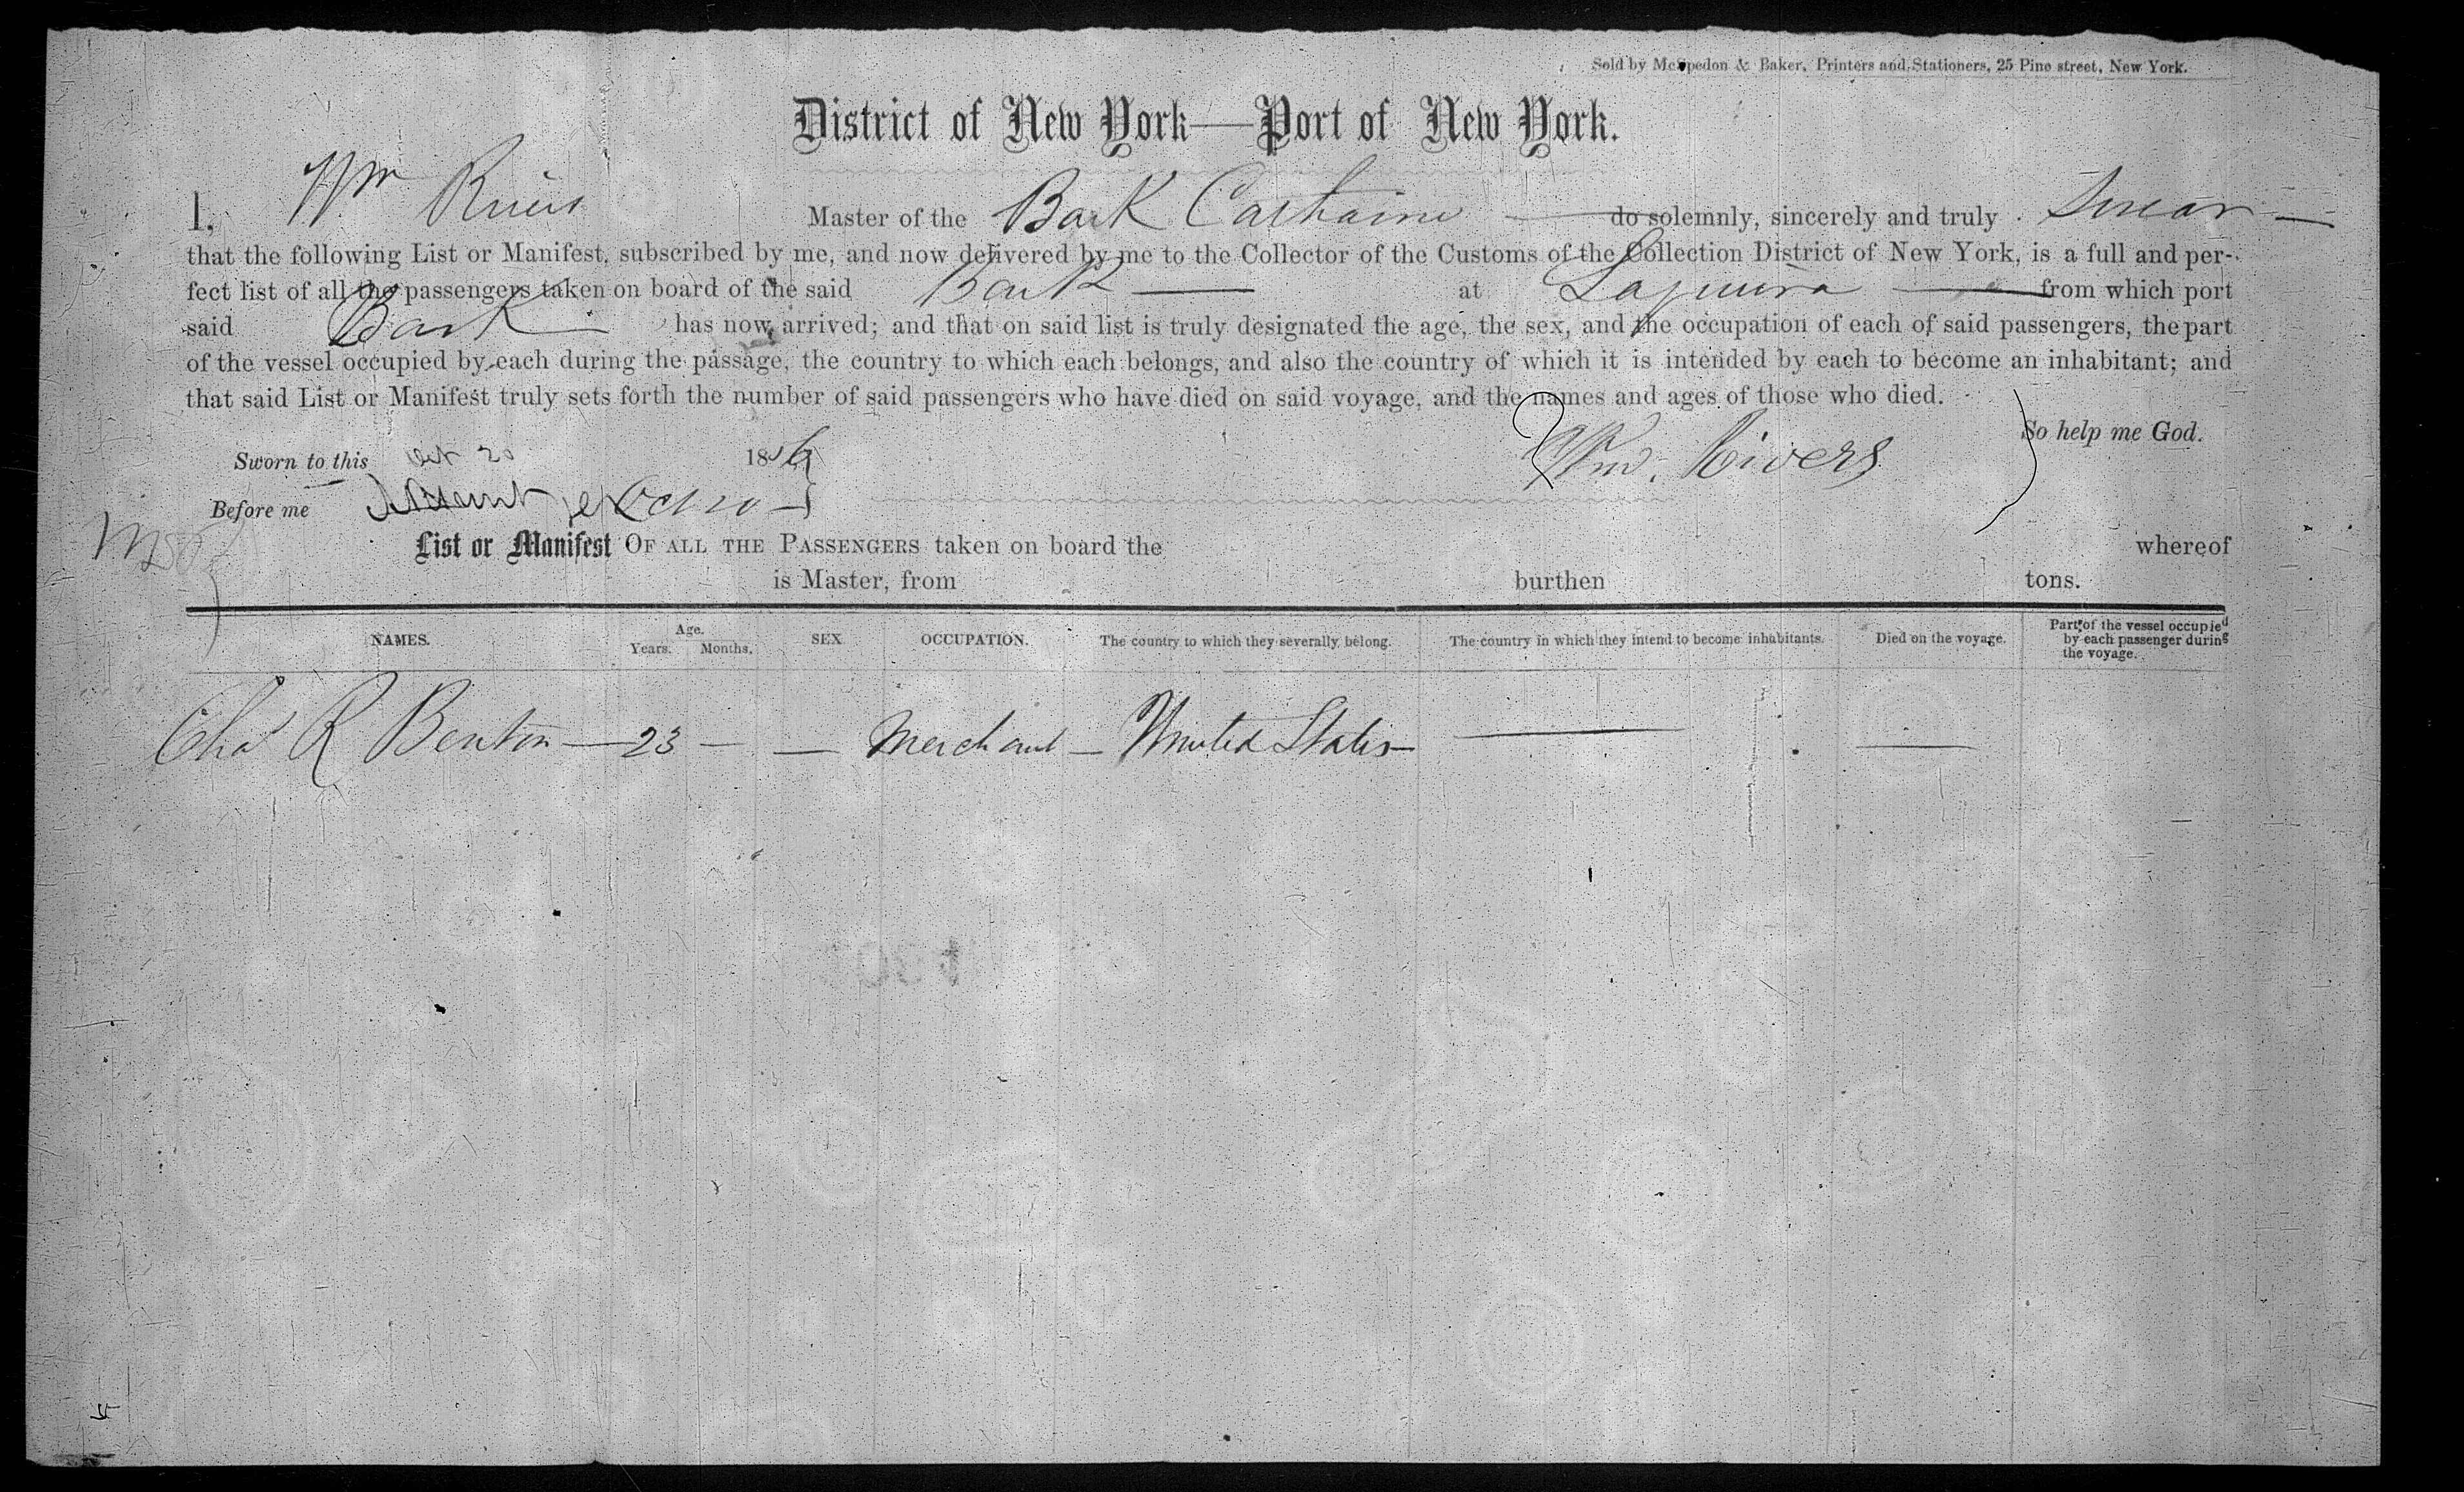 Sold by McSpedon & Baker, Printers and Stationers, 25 Pine street, New York.
District of New York—Port of New York.
I, Wm Rivers Master of the Bark do solemnly, sincerely and truly swear
that the following List or Manifest, subscribed by me, and now delivered by me to the Collector of the Customs of the Collection District of New York, is a full and per-
fect list of all the passengers taken on board of the said Bark at Laguira from which port
said Bark has now arrived; and that on said list is truly designated the age, the sex, and the occupation of each of said passengers, the part
of the vessel occupied by each during the passage, the country to which each belongs, and also the country of which it is intended by each to become an inhabitant; and
that said List or Manifest truly sets forth the number of said passengers who have died on said voyage, and the names and ages of those who died.
So help me God.
Sworn to this Oct 20 1856 Wm. Rivers
Before me
List or Manifest OF ALL THE PASSENGERS taken on board the whereof
is Master, from burthen tons.
NAMES. Age. Years. Months. SEX OCCUPATION. The country to which they severally belong. The country in which they intend to become inhabitants. Died on the voyage. Part of the vessel occupied by each passenger during the voyage.
Chas R Benton — 23 — — Merchant — United States — — —